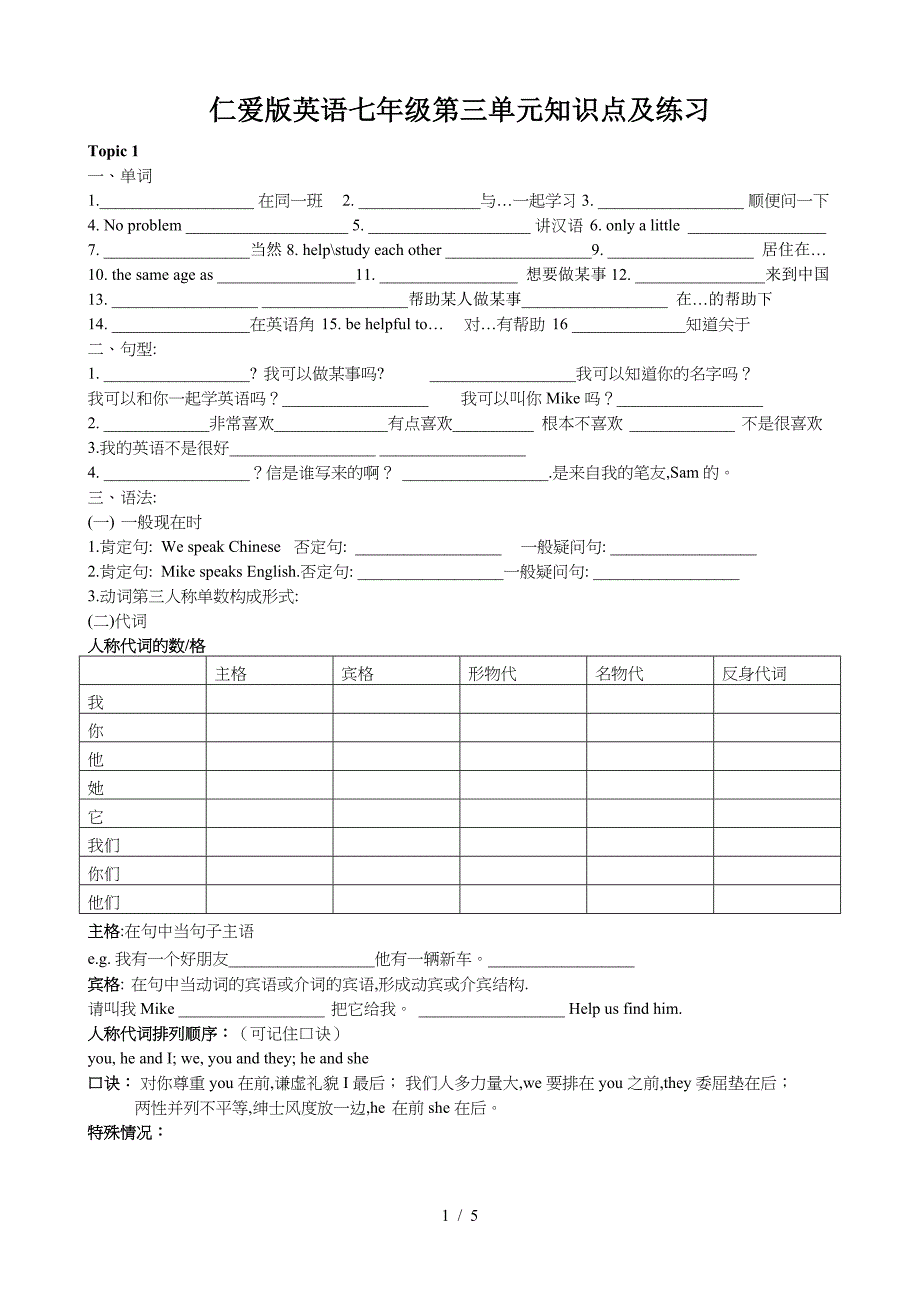 仁爱版英语七年级第三单元知识点及练习
Topic 1
一、单词
1.___________________ 在同一班 2. _______________与…一起学习 3. __________________ 顺便问一下
4. No problem ____________________ 5. ____________________ 讲汉语 6. only a little _________________
7. __________________当然 8. help\study each other __________________9. __________________ 居住在…
10. the same age as _________________11. _________________ 想要做某事 12. ________________来到中国
13. __________________ __________________帮助某人做某事__________________ 在…的帮助下
14. _________________在英语角 15. be helpful to… 对…有帮助 16 ______________知道关于
二、句型:
1. __________________? 我可以做某事吗? __________________我可以知道你的名字吗？
我可以和你一起学英语吗？__________________ 我可以叫你 Mike 吗？__________________
2. _____________非常喜欢______________有点喜欢__________ 根本不喜欢 _____________ 不是很喜欢
3.我的英语不是很好__________________ __________________
4. __________________？信是谁写来的啊？ __________________.是来自我的笔友,Sam 的。
三、语法:
(一) 一般现在时
1.肯定句: We speak Chinese 否定句: __________________ 一般疑问句: __________________
2.肯定句: Mike speaks English.否定句: __________________一般疑问句: __________________
3.动词第三人称单数构成形式:
(二)代词
人称代词的数/格
主格 宾格 形物代 名物代 反身代词
我
你
他
她
它
我们
你们
他们
主格:在句中当句子主语
e.g. 我有一个好朋友__________________他有一辆新车。__________________
宾格: 在句中当动词的宾语或介词的宾语,形成动宾或介宾结构.
请叫我 Mike __________________ 把它给我。 __________________ Help us find him.
人称代词排列顺序：（可记住口诀）
you, he and I; we, you and they; he and she
口诀： 对你尊重 you 在前,谦虚礼貌 I 最后； 我们人多力量大,we 要排在 you 之前,they 委屈垫在后；
两性并列不平等,绅士风度放一边,he 在前 she 在后。
特殊情况：
1 / 5